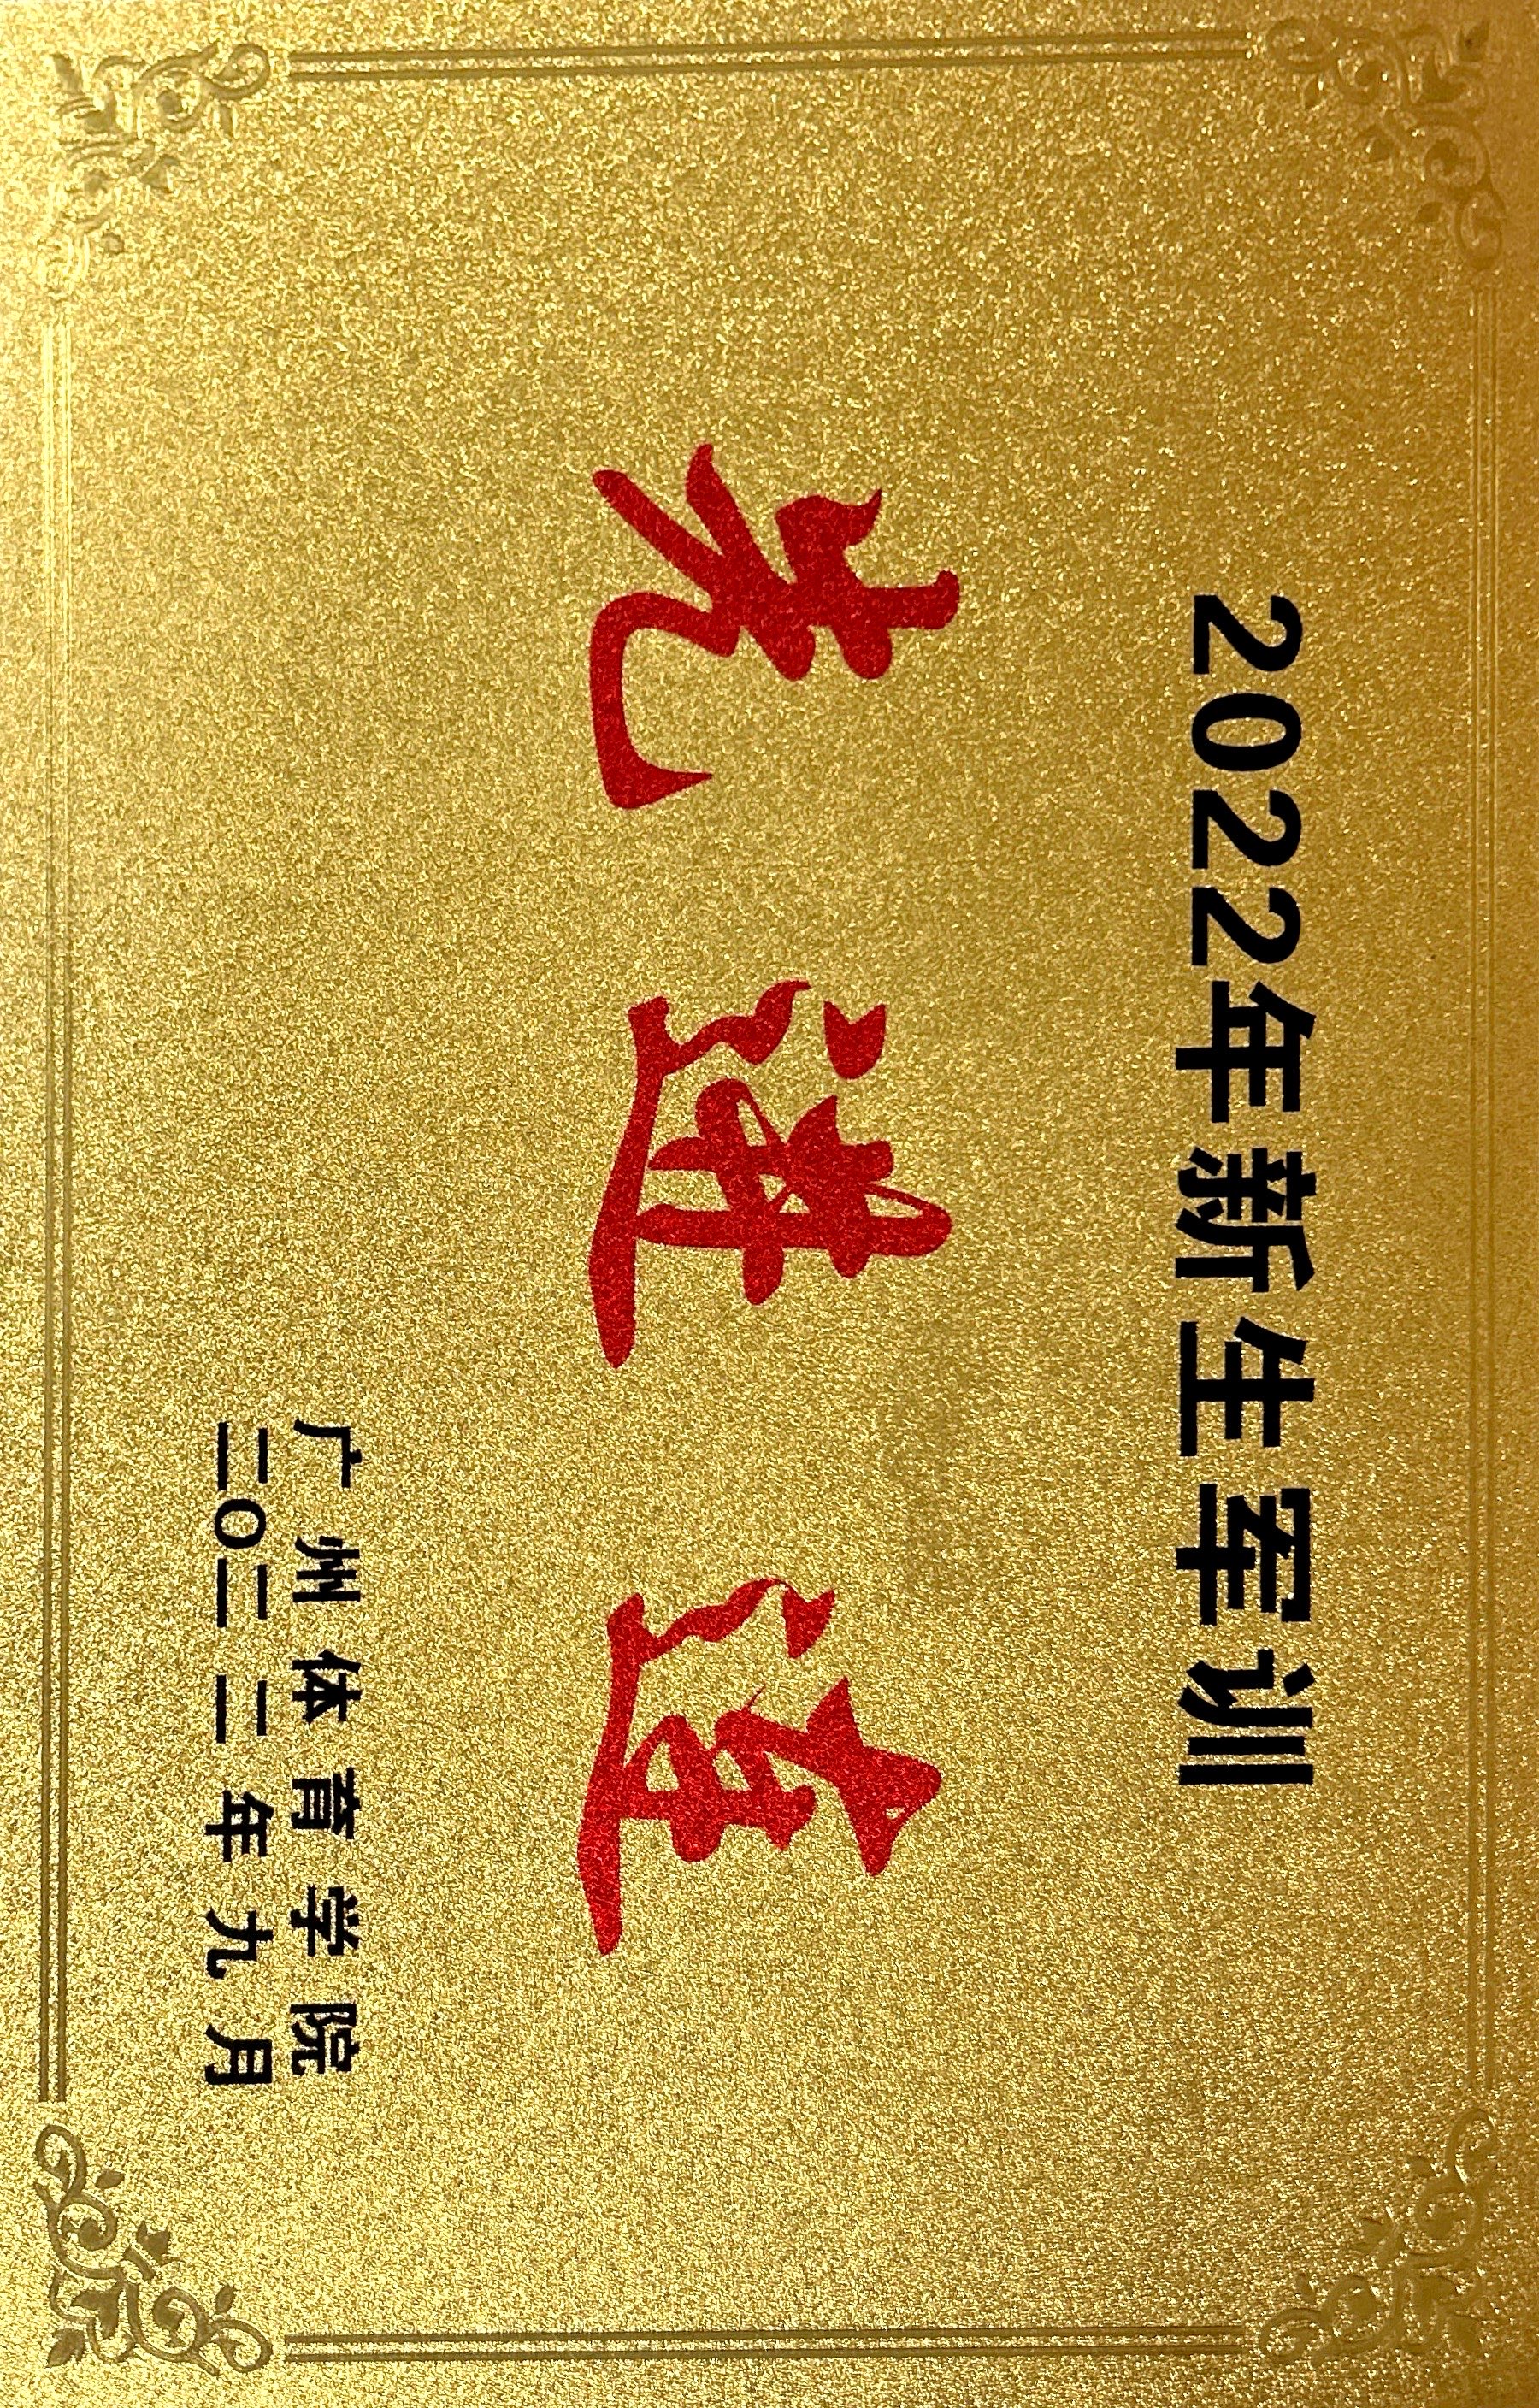 2022年新生军训
先進连
广州体育学院
二O二二年九月